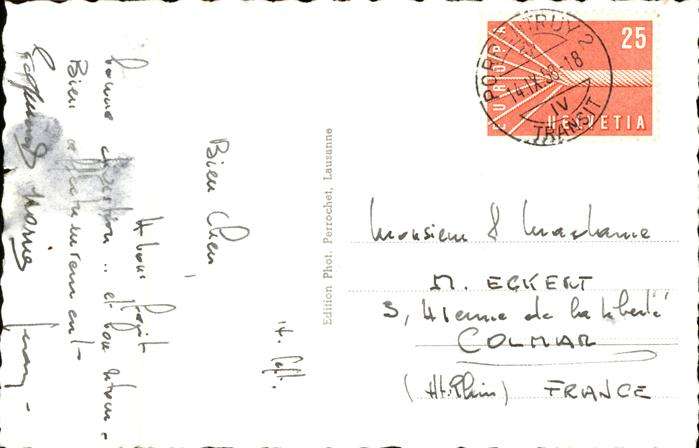 EUROPA
25
HELVETIA
PORRENTRUY 2
14.IX.58-18
IV
TRANSIT
Edition Phot. Perrochet, Lausanne
14. Sept.
Bien Chers,
A bon
bonne digestion.. et bon retour -
Bien affectueusement
Monsieur & Madame
M. ECKERT
3, Avenue de la liberté
COLMAR
(Ht. Rhin) FRANCE